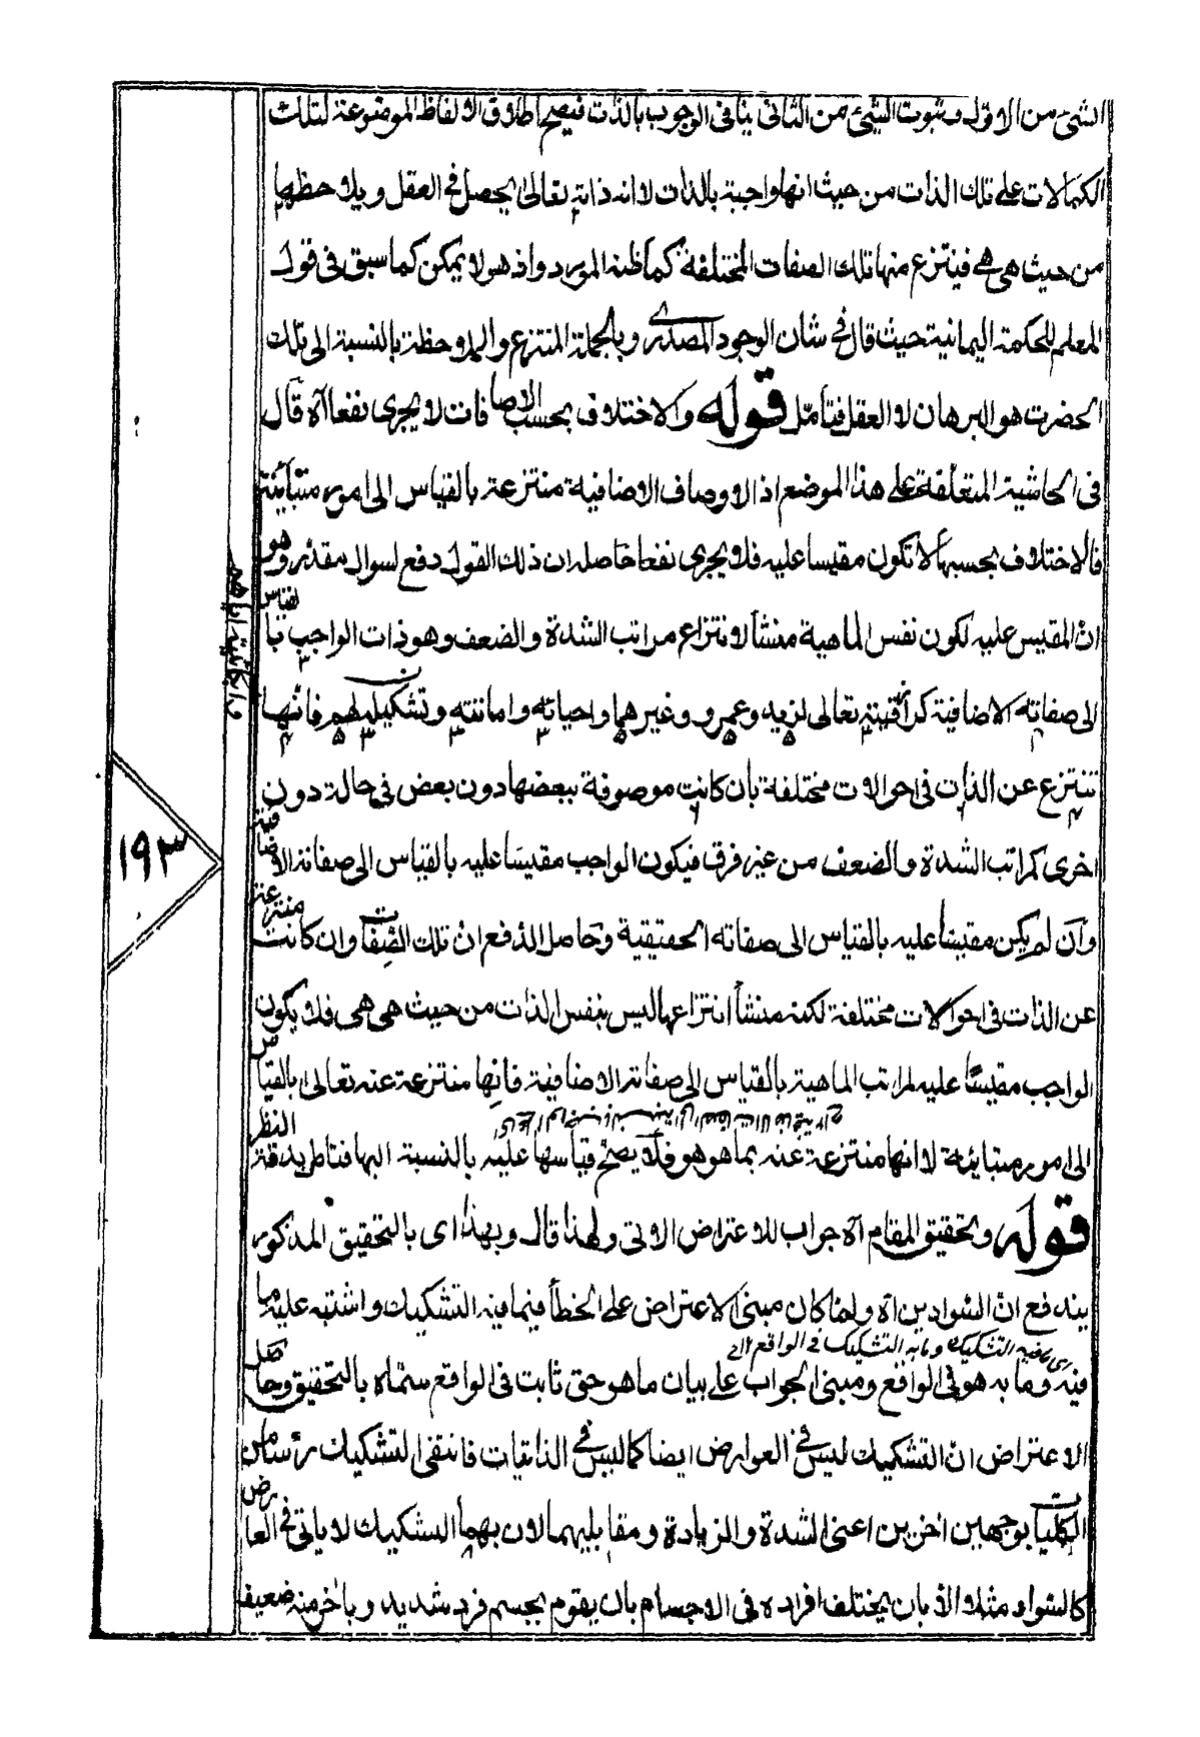 الشئ من الاول وثبوت الشئ من الثانى ينافى الوجوب بالذات فيصح اطلاق الالفاظ الموضوعة لتلك
الكمالات على تلك الذات من حيث انها واجبة بالذات لا انه ذاته تعالى يحصل فى العقل ويلاحظها
من حيث هى هى فينتزع منها تلك الصفات المختلفة كما ظنه المورد واذ هو لا يمكن كما سبق فى قول
المعلم للحكمة اليمانية حيث قال فى شان الوجود المصدرى وبالجملة المنتزع والملاحظة بالنسبة الى تلك
الحضرت هو البرهان لا العقل فتأمل قوله والاختلاف بحسب الاضافات لا يجرى نفعا آه قال
فى الحاشية المتعلقة على هذا الموضع اذ الاوصاف الاضافية منتزعة بالقياس الى امور متبائنة
فالاختلاف بحسبها لا تكون مقيسا عليه فلا يجرى نفعا حاصله ان ذلك القول دفع لسوال مقدر وهو
ان المقيس عليه لكون نفس الماهية منشأ لانتزاع مراتب الشدة والضعف وهو ذات الواجب بالقياس
الى صفاته الاضافية كرازقيته تعالى لزيد وعمرو وغيرهما واحياته واماتته وتشكيله لهم فانها
تنتزع عن الذات فى احوالات مختلفة بأن كانت موصوفة ببعضها دون بعض فى حالة دون
اخرى كمراتب الشدة والضعف من غير فرق فيكون الواجب مقيسا عليه بالقياس الى صفاته الاضافية
وان لم يكن مقيسا عليه بالقياس الى صفاته الحقيقية وحاصل الدفع ان تلك الصفات وان كانت منتزعة
عن الذات فى احوالات مختلفة لكنه منشأ انتزاعها ليس بنفس الذات من حيث هى هى فلا يكون
الواجب مقيسًا عليه لمراتب الماهية بالقياس الى صفاته الاضافية فانها منتزعة عنه تعالى بالقياس
الى امور متبائنة لا انها منتزعة عنه بما هو هو فلا يصح قياسها عليه بالنسبة اليها فتأمل بدقة النظر
قوله وتحقيق المقام آه جواب للاعتراض الاتى ولهذا قال وبهذا اى بالتحقيق المذكور
يندفع ان السوادين آه ولما كان مبنى الاعتراض على الخطأ فيما فيه التشكيك واشتبه عليه ما
اى ما فيه التشكيك وما به التشكيك فى الواقع
فيه وما به هو فى الواقع ومبنى الجواب على بيان ما هو حق ثابت فى الواقع سماه بالتحقيق وحاصل
الاعتراض ان التشكيك ليس فى العوارض ايضا كما ليس فى الذاتيات فانتفى التشكيك رأسا من
الكليات بوجهين اخرين اعنى الشدة والزيادة ومقابليهما لان بهما التشكيك لا ياتى فى العارض
كالسواد مثلا الا بان يختلف افراده فى الاجسام بان يقوم بجسم فرد شديد وباخر منه ضعيف
١٩٣